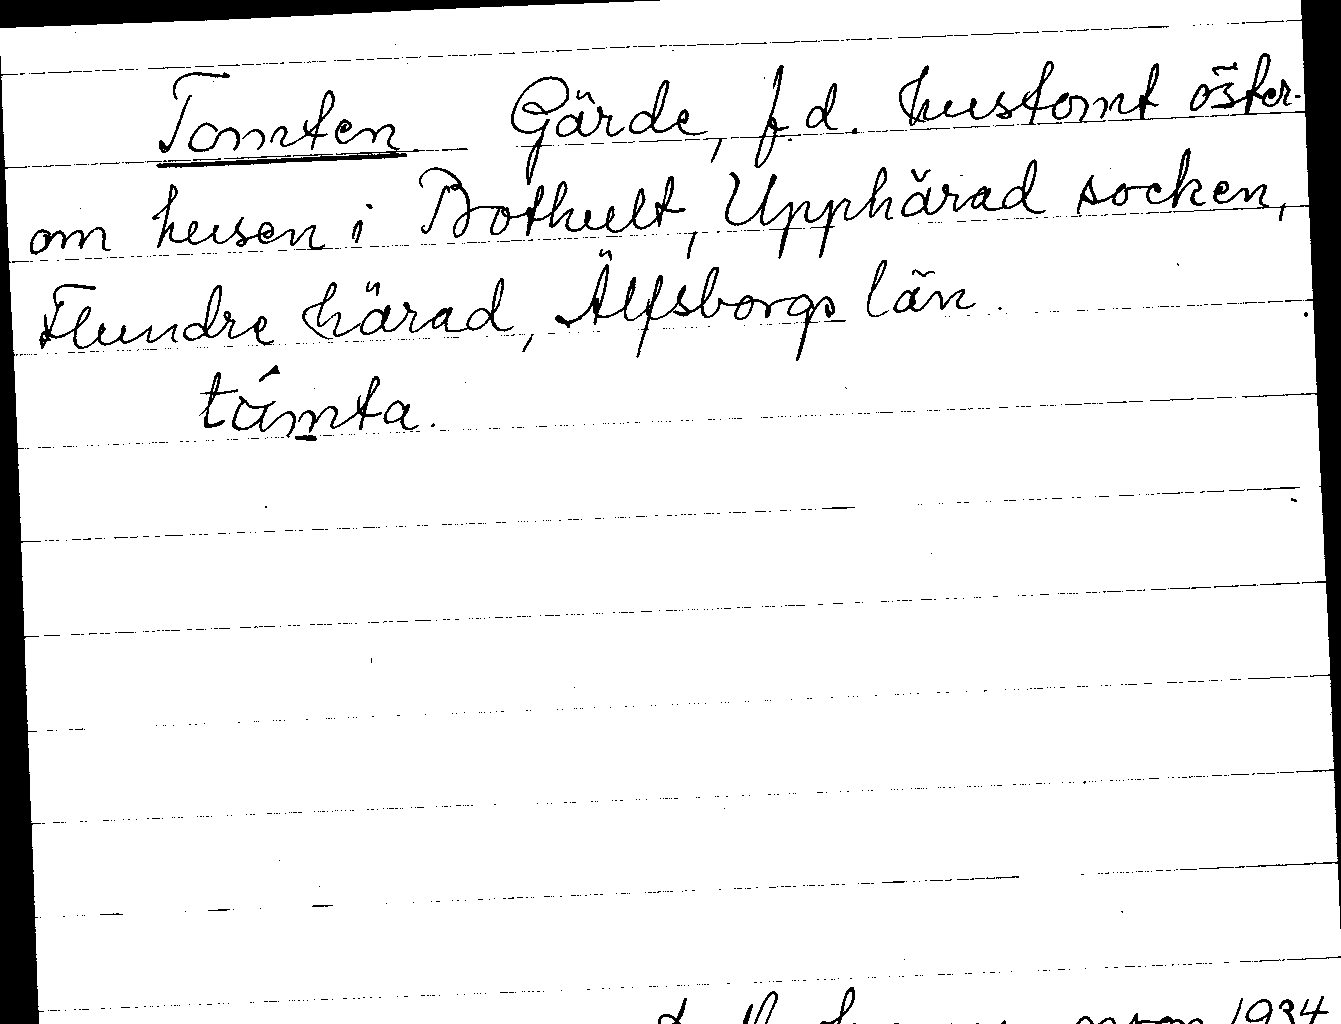 Tomten. Gärde, f.d. hustomt öster-
om husen i Bothult, Upphärad socken,
Flundre härad, Älfsborgs län.
túmta.
1934